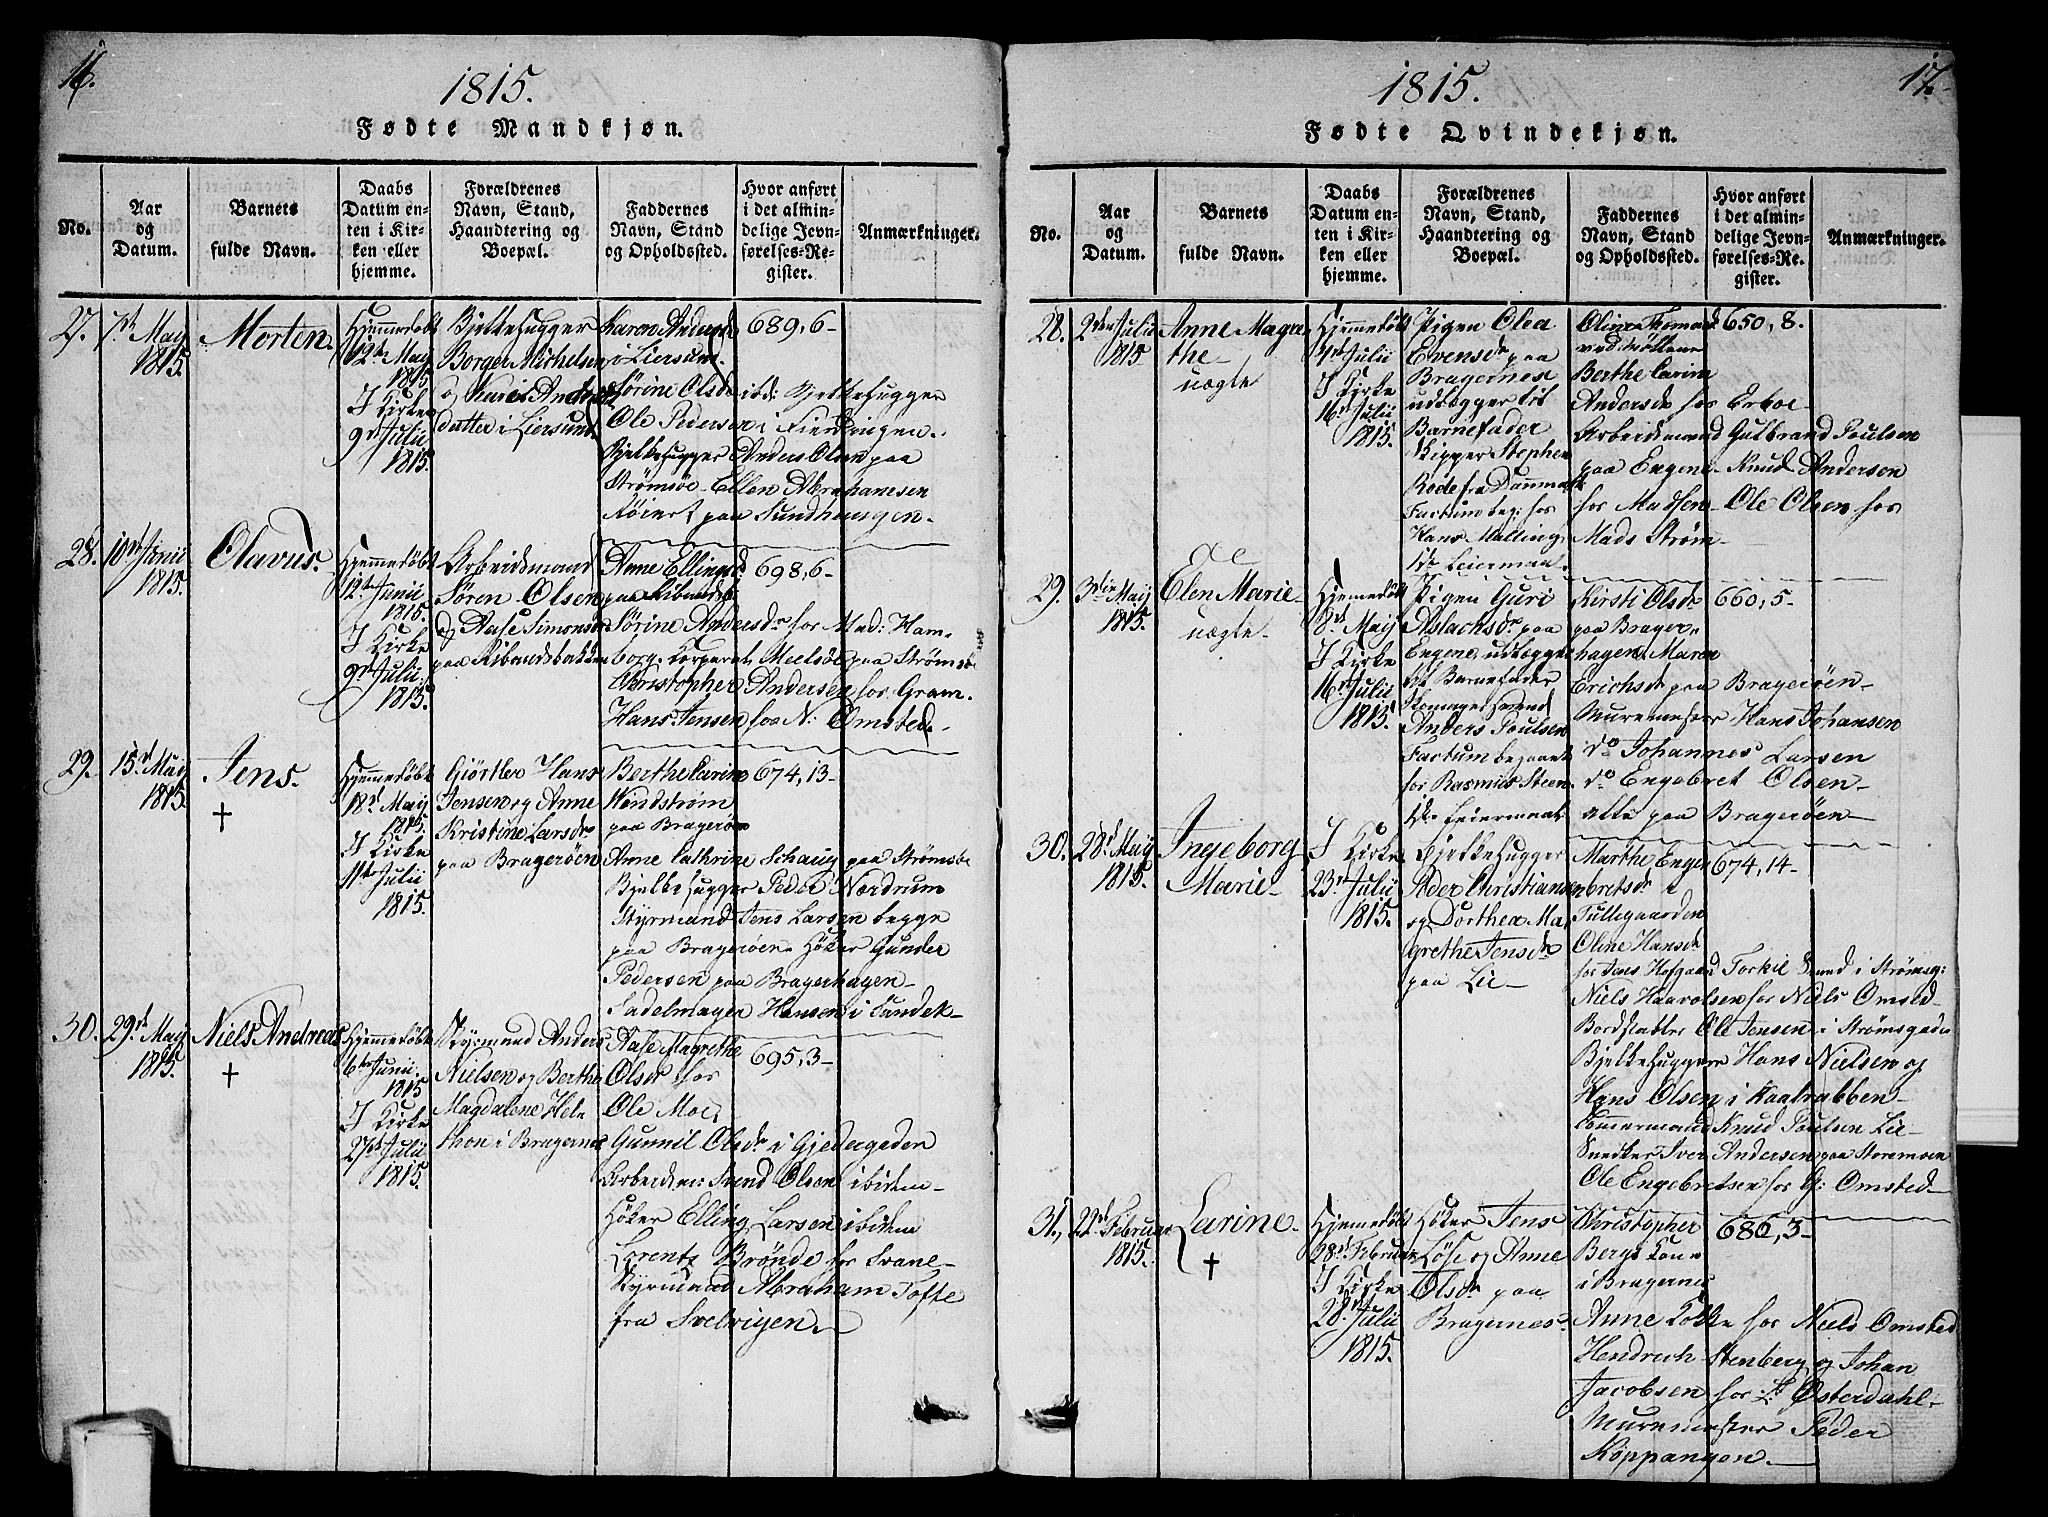 16.
1815.
Fødte Mandkjøn.
No.
Aar
og
Datum.
Barnets
fulde Navn.
Daabs
Datum en-
ten i Kir-
ken eller
hjemme.
Forældrenes
Navn, Stand,
Haandtering og
Boepæl.
Faddernes
Navn, Stand
og Opholdssted.
Hvor anført
i det almin-
delige Jevn-
førelses-Re-
gister.
Anmærkninger.
27.
7de May
1815.
Morten.
Hjemmedøbt
12te May
1815
I Kirke
9d Julii
1815.
Bjelkehugger
Borger Michelsen
og Kari Anders
datter i Liersund.
Karen Andersd
i Liersund.
Sørine Olsdr ibd: Bjelkehugger
Ole Pedersen i Fierdingen.
Bjelkehugger Anders Olsen paa
Strømsøe. Ellen Abrahamsen
Føiert paa Sundhaugen.
689,6-
28.
10de Junii
1815.
Olavus.
Hjemmedøbt
12te Junii
1815.
I Kirke
9d Julii
1815.
Arbeidsmand
Søren Olsen
og Aase Simonsdr
paa Ribandsbakken
Anne Ellingsd.
paa Ribandsb
Sørine Andersdr hos Mad: Ham-
borg. Korporal Meelsøe paa Strømsøe
Christopher Andersen hos Gram.
Hans Jensen hos N: Omsted.
698,6-
29.
15d May
1815.
Jens.
†
Hjemmedøbt
18d Maij
1815.
I Kirke
11te Julii
1815.
Giörtler Hans
Jensen og Anne
Kristine Larsdr
paa Bragerøen
Berthe Carine
Wendstrøm
paa Bragerøen
Anne Cathrine Schaug paa Strømsøe
Bjelkehugger Peder Nordrum
Styrmand Jens Larsen begge
paa Bragerøen. Höker Gunder
Pedersen paa Bragerhagen-
Sadelmager Hansen i Sandek-
674,13-
30.
29de May
1815.
Niels Andreas
†
Hjemmedøbt
6te Junii.
1815
I Kirke
27de Julii
1815.
Styrmand Anders
Nielsen og Berthe
Magdalene Heln
thon i Bragernes
Aase Magrethe
Olsdr hos
Ole Moe,
Gunnil Olsdr i Gjedergaden
Arbeidsm: Svend Olsen ibidem-
Höker Elling Larsen ibidem
Lorentz Brønde hos Svane-
Styrmand Abraham Tofte
fra Svelvigen.
695,3-
17.
1815.
Fødte Qvindekjøn.
No.
Aar
og
Datum.
Barnets
fulde Navn.
Daabs
Datum en-
ten i Kir-
ken eller
hjemme.
Forældrenes
Navn, Stand,
Haandtering og
Boepæl.
Faddernes
Navn, Stand
og Opholdssted.
Hvor anført
i det almin-
delige Jevn-
førelses-Re-
gister.
Anmærkninger.
28.
2den Julii
1815
Anne Magre
the-
uægte
Hjemmedøbt
4de Julii
I Kirke
16de Julii
1815.
Pigen Olea
Evensdr paa
Bragernes
udlægger til
Barnefader
Skipper Stephen
Rode fra Danmark
Factum beg: hos
Hans Malling
1te Leiermaal.
Oline Thomasd
Berthe Carine
Andersdr hos Erboe-
Arbeidsmand Gulbrand Poulsen
paa Engene. Knud Andersen
hos Madsen- Ole Olsen hos
Mads Strøm-
650,8.
29.
3die Maij
1815.
Elen Marie-
uægte
Hjemmedøbt
8de Maij
I Kirke
16de Julii
1815.
Pigen Guri
Aslachsdr paa
Engene, udlægger
til Barnefader
Skomagersvend
Anders Poulsen
Factum begaaet
hos Rasmus Steen
1te Leiermaal
Kirsti Olsdr
paa Brager-
hagen, Maren
Erichsdr paa Bragerøen-
Muremester Hans Johansen
do Johannes Larsen
do Engebret Olsen-
alle paa Bragerøen-
660,5-
30.
28d Maij
1815.
Ingeborg
Marie-
I Kirke
23de Julii
1815.
Bjelkehugger
Peder Christiansen
og Dorthea Ma
grethe Jensdr
paa Lie-
Marthe Engen
bretsdr i
Tullegaarden
Oline Hansdr
hos Jens Hofgaard Torkil Svend i Strømsg:
Niels Haavolsen hos Niels Omsted-
Bordstabler Ole Jensen i Strømsgaden
Bjelkehuggere Hans Nielsen og
Hans Olsen i Kaatrabben-
Tömmermand Knud Poulsen Lie-
Snedker Iver Andersen paa Storemoen
Ole Engebretsen hos G: Omsted-
674,14-
31.,
22de Februar
1815.
Larine-
†
Hjemmedøbt
28de Februar
I Kirke
28de Julii
1815.
Höker Jens
Løse og Anne
Olsdr paa
Bragernes.
Christopher
Bergs Kone
i Bragernes
Anne Cokke hos Niels Omsted
Hendrich Stenberg og Johan
Jacobsen hos P Østerdahl-
Muremester Peder
Koppangen.
686,3-